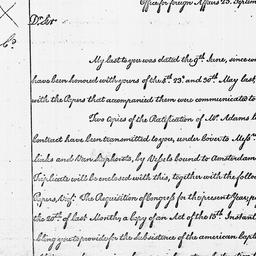 Office for foreign Affairs 23. Septem
D.r Sir
My last to you was dated the 9.th June, since w
have been honored with yours of the 8.th 23.d and 30.th May last,
with the Papers that accompanied them were communicated to
Two Copies of the Ratification of M.r Adams's l
contract have been transmitted to you, under cover to Mess.rs
links and Van Staphorsts, by Vessels bound to Amsterdam
Triplicate will be enclosed with this, together with the follow
Papers, Viz.t The Requisition of Congress for the present Year, pa
the 20.th of last Month, a copy of an Act of the 18.th Instant
bling you to provide for the subsistence of the american Capt